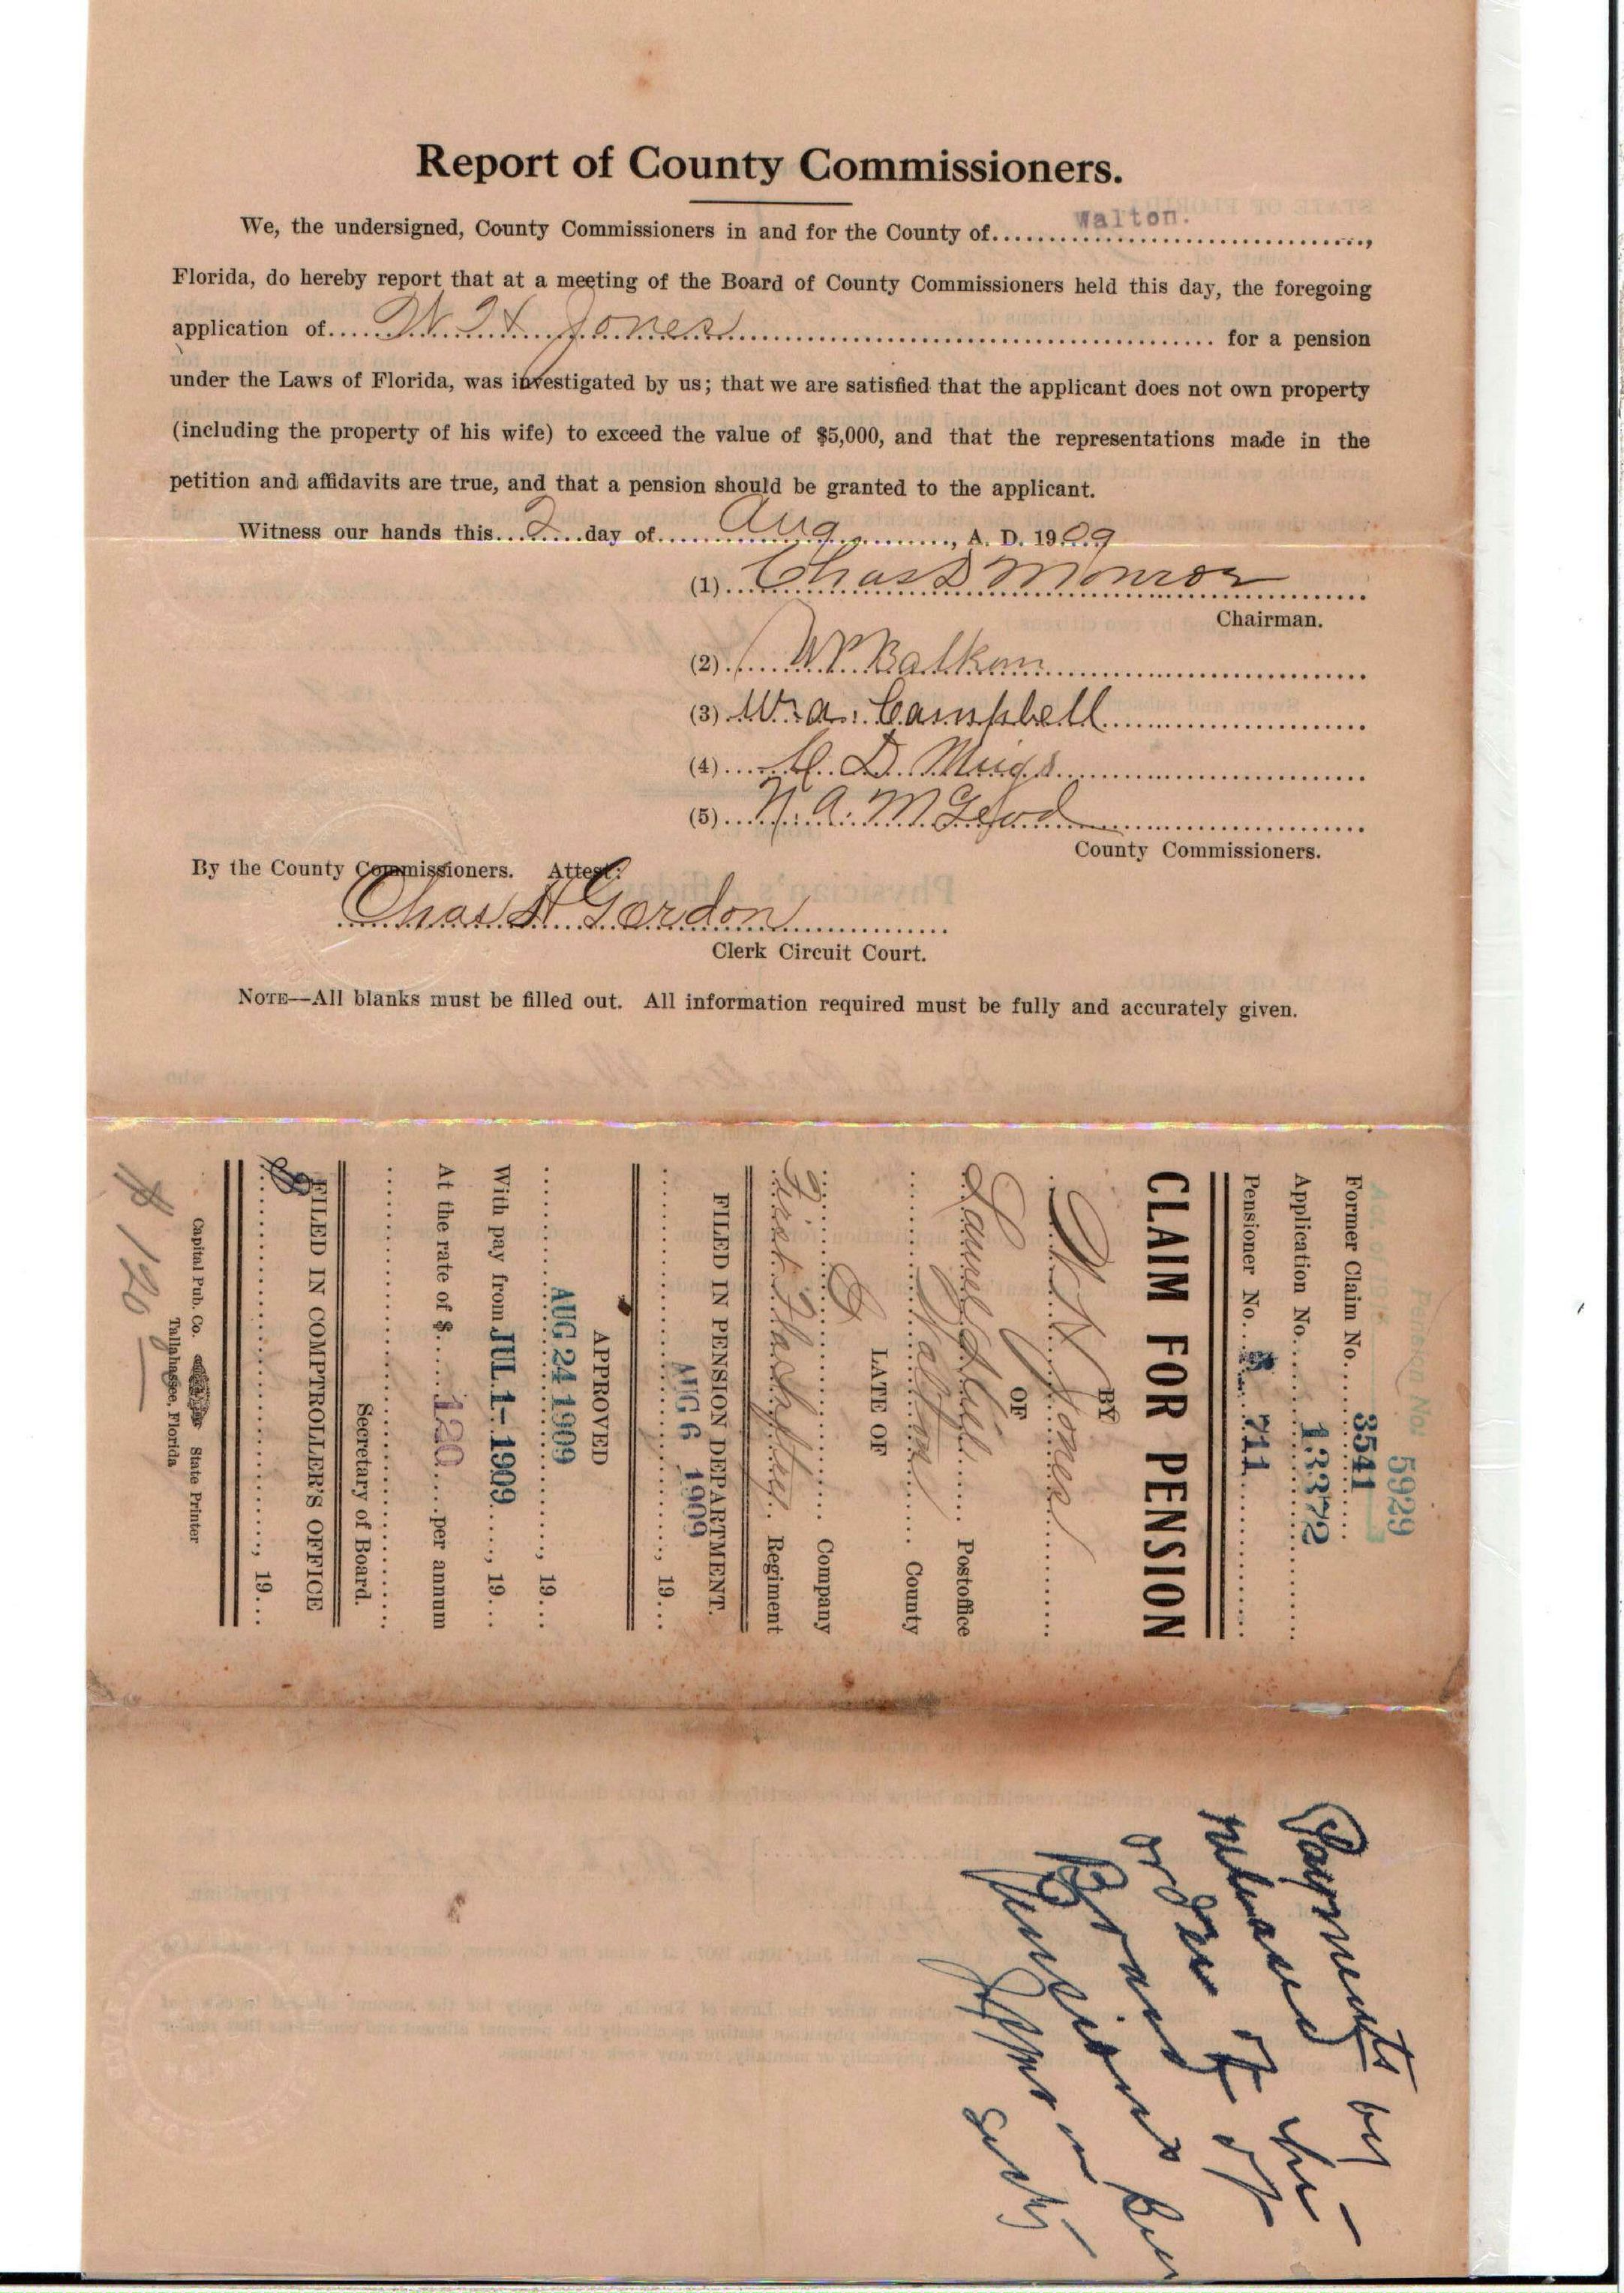 Report of County Commissioners.
We, the undersigned, County Commissioners in and for the County of Walton.,
Florida, do hereby report that at a meeting of the Board of County Commissioners held this day, the foregoing
application of W H Jones for a pension
under the Laws of Florida, was investigated by us; that we are satisfied that the applicant does not own property
(including the property of his wife) to exceed the value of $5,000, and that the representations made in the
petition and affidavits are true, and that a pension should be granted to the applicant.
Witness our hands this 2 day of Aug, A. D. 1909
(1) Chas D Monroe
Chairman.
(2) W P Balkom
(3) W. A. Campbell
(4) D. Meigs
(5) N. A. McLeod
County Commissioners.
By the County Commissioners. Attest:
Chas H Gordon
Clerk Circuit Court.
NOTE—All blanks must be filled out. All information required must be fully and accurately given.
Pension No. 5929
Former Claim No. 3541
Application No. 13372
Pensioner No. 711
CLAIM FOR PENSION
BY
W H Jones
OF
Laurel Hill Postoffice
Walton County
LATE OF
Company
First Fla Inftry Regiment
FILED IN PENSION DEPARTMENT.
AUG 6 1909, 19
APPROVED
AUG 24 1909, 19
With pay from JUL 1- 1909, 19
At the rate of $ 120 per annum
Secretary of Board.
FILED IN COMPTROLLER'S OFFICE
, 19
Capital Pub. Co. State Printer
Tallahassee, Florida
$ 120
Payments by
released by
order of
Board of
Pensions